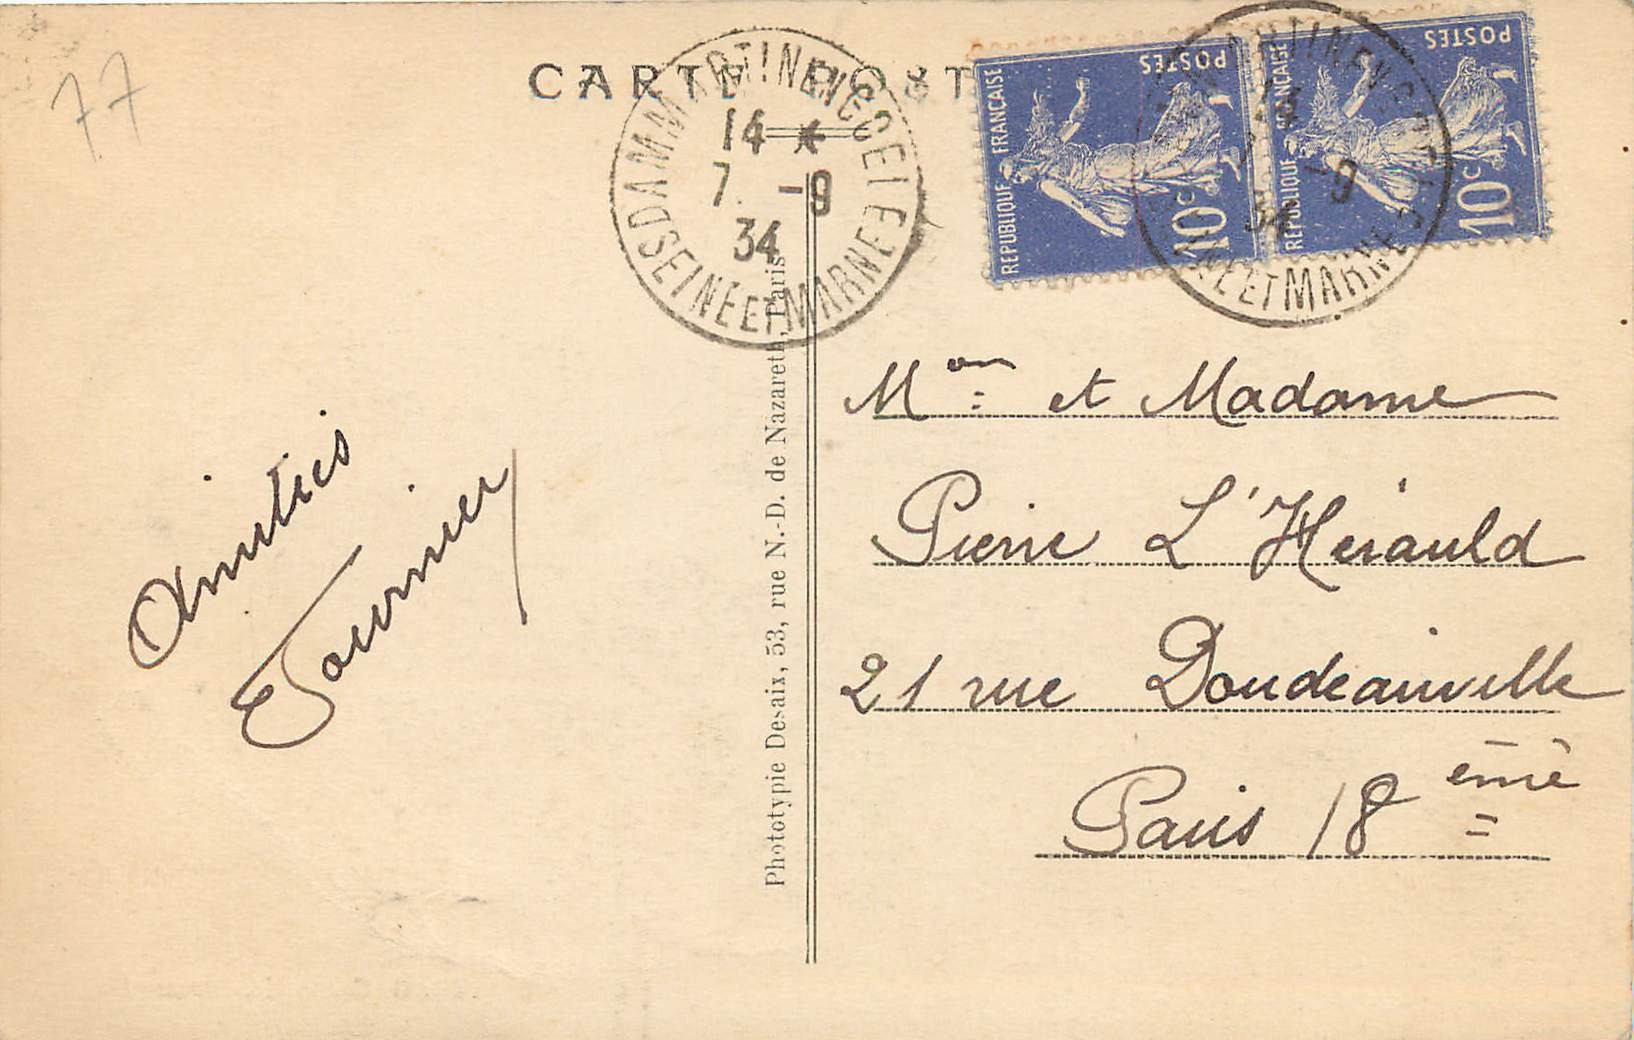 77
CARTE POST
DAMMARTIN EN GOELE
14 *
7 -9
34
SEINE ET MARNE
POSTES
REPUBLIQUE FRANÇAISE
10c
POSTES
REPUBLIQUE FRANÇAISE
10c
-9
34
SEINE ET MARNE
Phototypie Desaix, 53, rue N.-D. de Nazareth, Paris
Amitiés
Tournier
Mon et Madame
Pierre L'Hérauld
21 rue Doudeauville
Paris 18 ème